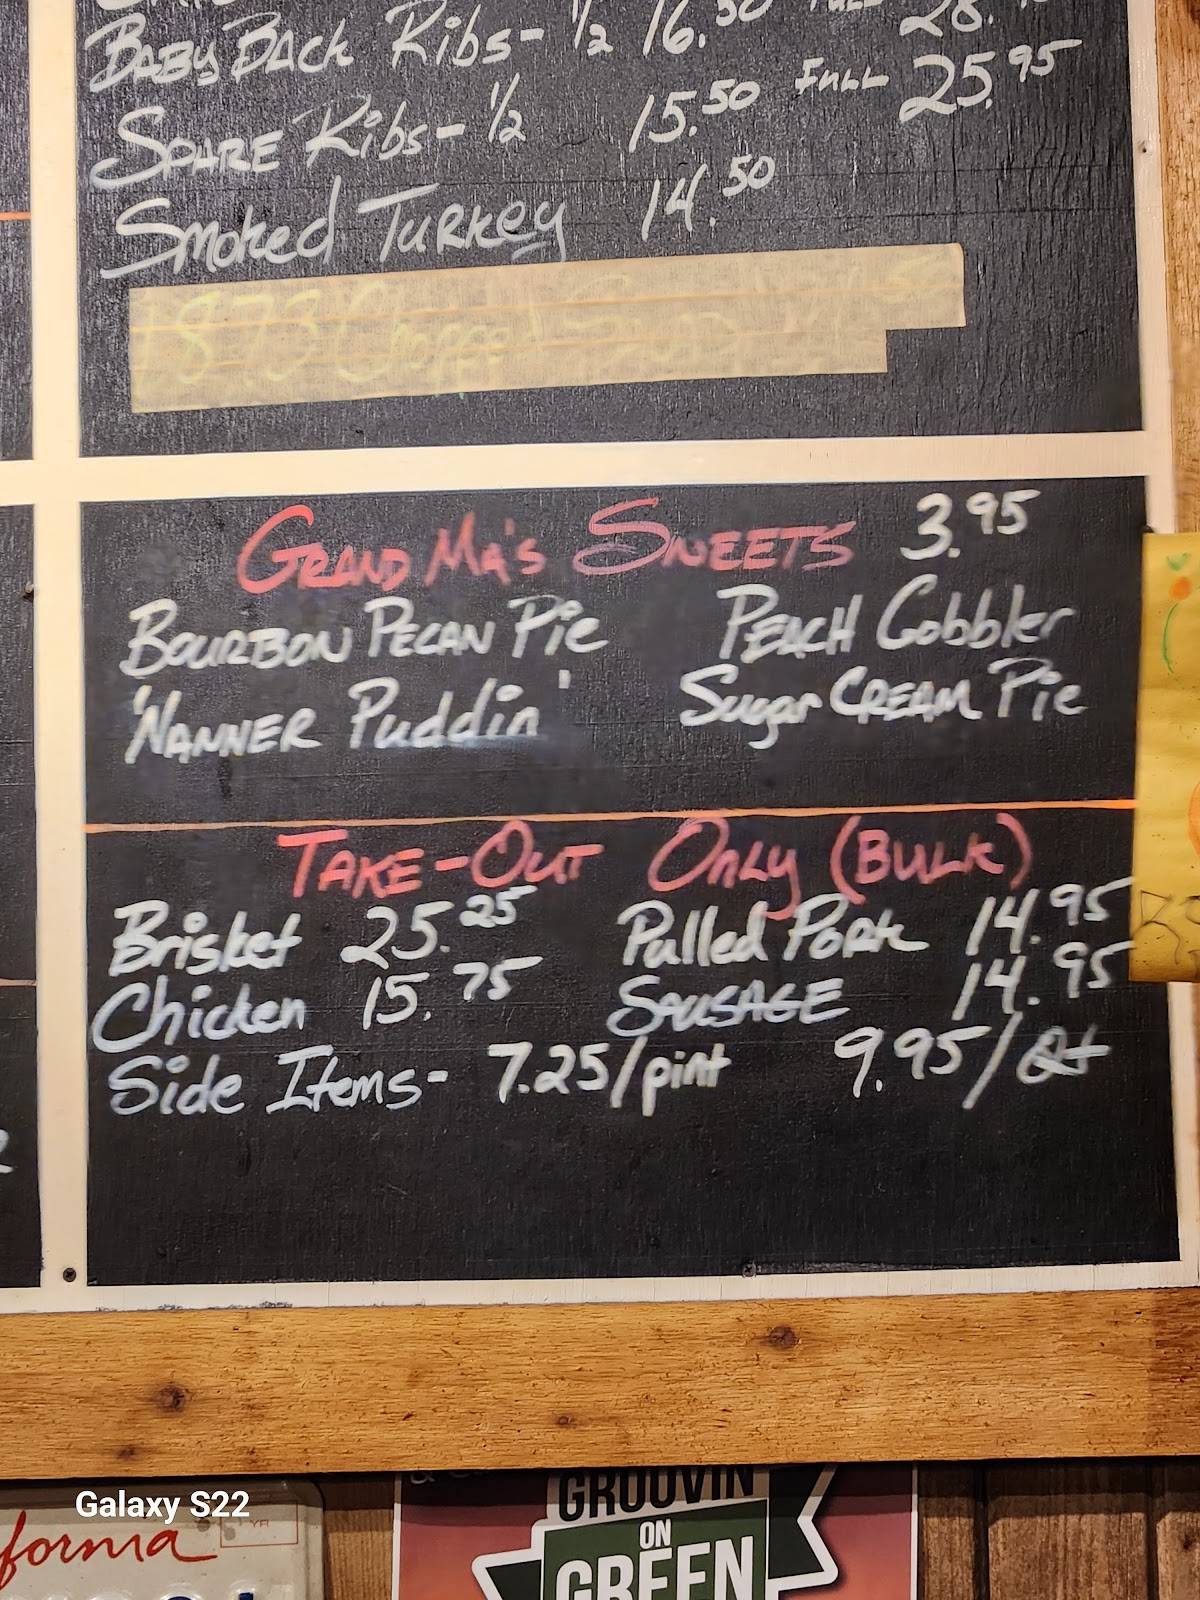 Baby Back Ribs - 1/2 16.50 28.
Spare Ribs - 1/2 15.50 Full 25.95
Smoked Turkey 14.50
Grand Ma's Sweets 3.95
Bourbon Pecan Pie Peach Cobbler
'Nanner Puddin' Sugar Cream Pie
Take-Out Only (Bulk)
Brisket 25.25 Pulled Pork 14.95
Chicken 15.75 Sausage 14.95
Side Items - 7.25/pint 9.95/Qt
Galaxy S22
GROOVIN
ON
GREEN